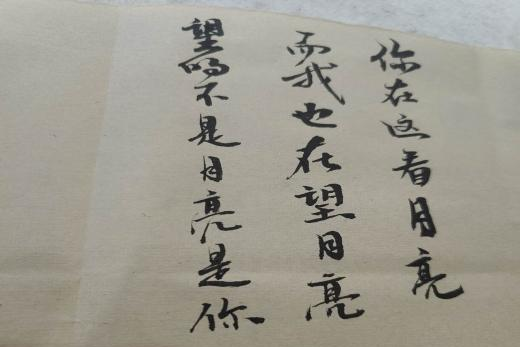 你在这看月亮
而我也在望月亮
望的不是月亮是你